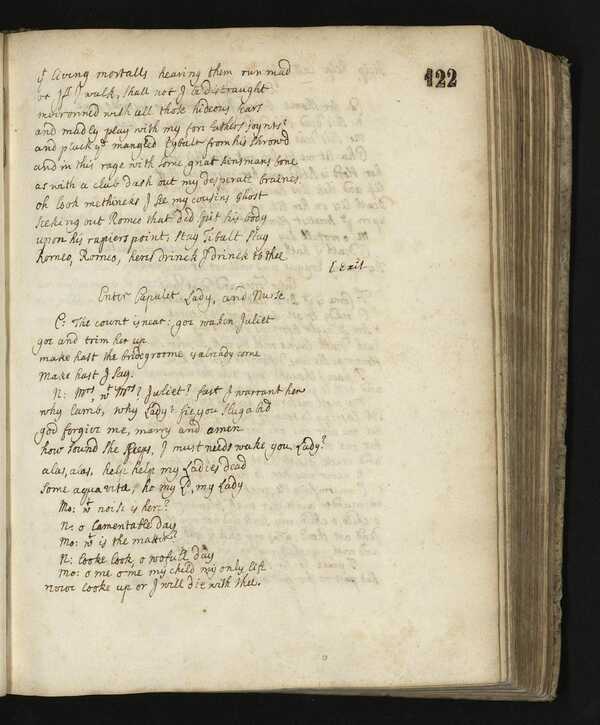 122
yt living mortalls hearing them run mad
or if I walk, shall not I be distraught
invironned with all those hideous fears
and madly play with my fore fathers joynts?
and pluck ye mangled Tybalt from his shrowd
and in this rage with some great kinsmans bone
as with a club dash out my desperate braines.
oh look methinkes I see my cousins Ghost
seeking out Romeo that did spit his body
upon his rapiers point, stay Tibalt stay
Romeo, Romeo, heres drinck I drinck to thee
[Exit
Enter Capulet Lady, and Nurse
C: The count is near: goe waken Juliet
goe and trim her up
make hast the bridegroome is already come
Make hast I say.
N: Mrs wt Mrs? Juliet? fast I warrant her
why lamb, why Lady? fie, you slugabed
god forgive me, marry and amen
how sound she sleeps, I must needs wake you Lady?
alas, alas, help help my Ladies dead
some aqua vitæ, ho my L, my Lady
Mo: wt noise is here?
N: o lamentable day
Mo: wt is the matter?
N: looke look, o wofull day
Mo: o me o me my child my only life
looke up or I will die with thee.